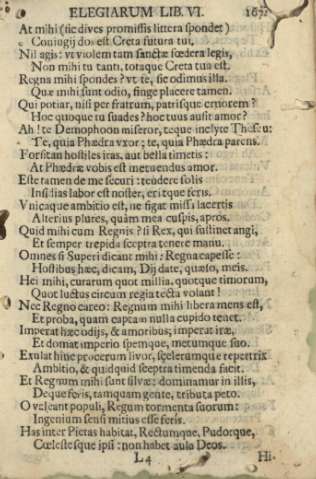 ELEGIARUM LIB. VI. 167.
At mihi (sic dives promissis littera spondet)
Coniugij dos est Creta futura tui,
Nil agis: vt violem tam sanctæ fœdera legis,
Non mihi tu tanti, totaque Creta tua est.
Regna mihi spondes? vt te, sic odimus illa.
Quæ mihi sunt odio, finge placere tamen.
Qui potiar, nisi per fratrum, patrisque cruorem?
Hoc quoque tu suades? hoc tuus ausit amor?
Ah! te Demophoon miseror, teque inclyte Theseu:
Te, quia Phædra vxor; te, quia Phædra parens.
Forsitan hostiles iras, aut bella timetis:
At Phædræ vobis est metuendus amor.
Este tamen de me securi: tendere solis
Insidias labor est noster, eritque feris.
Vnica que ambitio est, ne figat missa lacertis
Alterius plures, quàm mea cuspis, apros.
Quid mihi cum Regnis? si Rex, qui sustinet angi,
Et semper trepida sceptra tenere manu.
Omnes si Superi dicant mihi: Regna capesse:
Hostibus hæc, dicam, Dij date, quæso, meis.
Hei mihi, curarum quot millia, quotque timorum,
Quot luctus circum regia tecta volant!
Nec Regno careo: Regnum mihi libera mens est,
Et proba, quam captam nulla cupido tenet.
Imperat hæc odijs, & amoribus; imperat iræ,
Et domat imperio spemque, metumque suo.
Exulat hinc procerum livor, scelerumque repertrix
Ambitio, & quidquid sceptra timenda facit.
Et Regnum mihi sunt silvæ: dominamur in illis,
Deque feris, tamquam gente, tributa peto.
O valeant populi, Regum tormenta suorum:
Ingenium sensi mitius esse feris.
Has inter Pietas habitat, Rectumque, Pudorque,
Cœlestesque ipsi: non habet aula Deos.
L4 Hi-